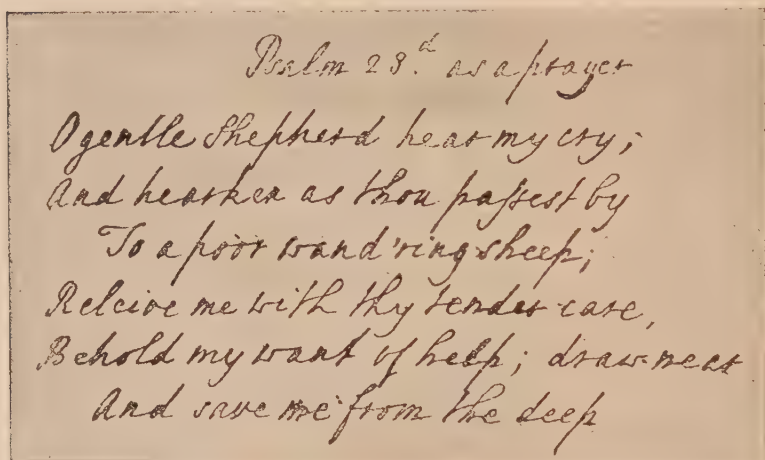 Psalm 23.d as a prayer
O gentle Shepherd hear my cry;
And hearken as thou paſsest by
To a poor wand'ring sheep;
Releive me with thy tender care,
Behold my want of help; draw near
And save me from the deep